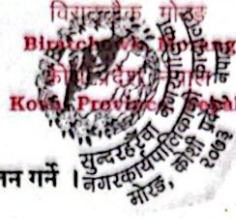 विराटचोक, मोरङ
Biratchowk, Morang
कोशी प्रदेश, नेपाल
Koshi Province, Nepal
सुन्दरहरैंचा नगरपालिका
नगरकार्यपालिकाको
मोरङ, कोशी प्रदेश
२०७३
न गर्ने ।